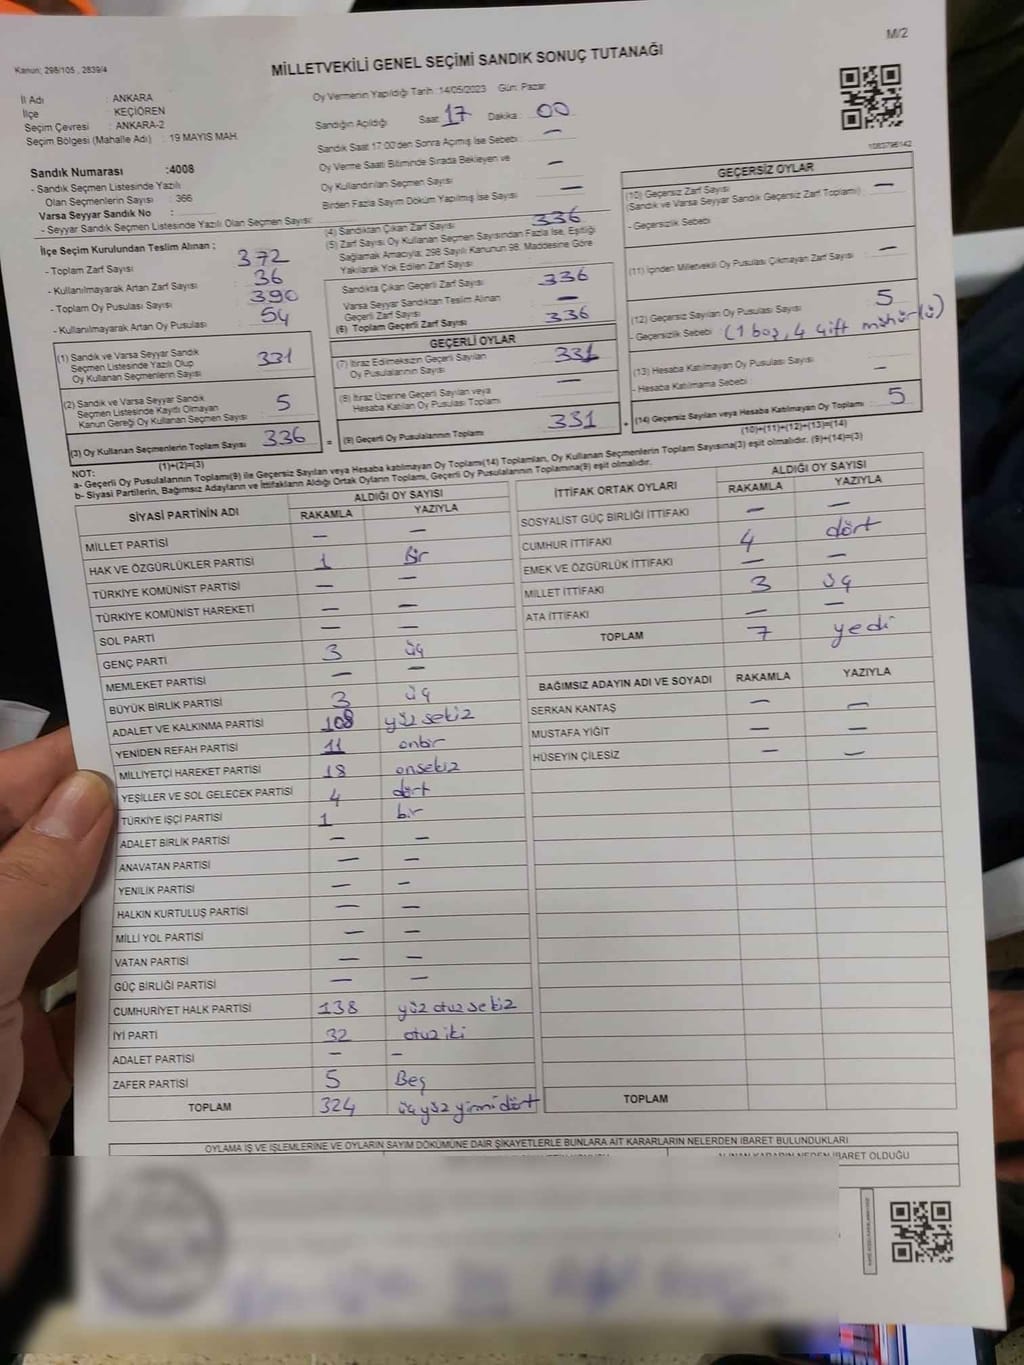 M/2
Kanun; 298/105 , 2839/4
MİLLETVEKİLİ GENEL SEÇİMİ SANDIK SONUÇ TUTANAĞI
İl Adı : ANKARA
İlçe : KEÇİÖREN
Seçim Çevresi : ANKARA-2
Seçim Bölgesi (Mahalle Adı) : 19 MAYIS MAH.
Sandık Numarası :4008
- Sandık Seçmen Listesinde Yazılı
Olan Seçmenlerin Sayısı : 366
Varsa Seyyar Sandık No :
- Seyyar Sandık Seçmen Listesinde Yazılı Olan Seçmen Sayısı:
Oy Vermenin Yapıldığı Tarih :14/05/2023 Gün: Pazar
Sandığın Açıldığı Saat 17 Dakika : 00
Sandık Saat 17:00'den Sonra Açımış İse Sebebi : —
Oy Verme Saati Bitiminde Sırada Bekleyen ve
Oy Kullandırılan Seçmen Sayısı : —
Birden Fazla Sayım Döküm Yapılmış İse Sayısı : —
1083796142
İlçe Seçim Kurulundan Teslim Alınan ;
- Toplam Zarf Sayısı : 372
- Kullanılmayarak Artan Zarf Sayısı : 36
- Toplam Oy Pusulası Sayısı : 390
- Kullanılmayarak Artan Oy Pusulası : 54
(1) Sandık ve Varsa Seyyar Sandık
Seçmen Listesinde Yazılı Olup
Oy Kullanan Seçmenlerin Sayısı : 331
(2) Sandık ve Varsa Seyyar Sandık
Seçmen Listesinde Kayıtlı Olmayan
Kanun Gereği Oy Kullanan Seçmen Sayısı : 5
(3) Oy Kullanan Seçmenlerin Toplam Sayısı : 336
(1)+(2)=(3)
(4) Sandıktan Çıkan Zarf Sayısı : 336
(5) Zarf Sayısı Oy Kullanan Seçmen Sayısından Fazla İse, Eşitliği
Sağlamak Amacıyla; 298 Sayılı Kanunun 98. Maddesine Göre
Yakılarak Yok Edilen Zarf Sayısı :
Sandıkta Çıkan Geçerli Zarf Sayısı : 336
Varsa Seyyar Sandıktan Teslim Alınan
Geçerli Zarf Sayısı : —
(6) Toplam Geçerli Zarf Sayısı : 336
GEÇERLİ OYLAR
(7) İtiraz Edilmeksizin Geçerli Sayılan
Oy Pusulalarının Sayısı : 331
(8) İtiraz Üzerine Geçerli Sayılan veya
Hesaba Katılan Oy Pusulası Toplamı : —
= (9) Geçerli Oy Pusulalarının Toplamı : 331
GEÇERSİZ OYLAR
(10) Geçersiz Zarf Sayısı : —
(Sandık ve Varsa Seyyar Sandık Geçersiz Zarf Toplamı)
- Geçersizlik Sebebi :
(11) İçinden Milletvekili Oy Pusulası Çıkmayan Zarf Sayısı : —
(12) Geçersiz Sayılan Oy Pusulası Sayısı : 5
- Geçersizlik Sebebi : (1 boş, 4 çift mühür(lü)
(13) Hesaba Katılmayan Oy Pusulası Sayısı : —
- Hesaba Katılmama Sebebi :
+ (14) Geçersiz Sayılan veya Hesaba Katılmayan Oy Toplamı : 5
(10)+(11)+(12)+(13)=(14)
NOT:
a- Geçerli Oy Pusulalarının Toplamı(9) ile Geçersiz Sayılan veya Hesaba katılmayan Oy Toplamı(14) Toplamları, Oy Kullanan Seçmenlerin Toplam Sayısına(3) eşit olmalıdır. (9)+(14)=(3)
b- Siyasi Partilerin, Bağımsız Adayların ve İttifakların Aldığı Ortak Oyların Toplamı, Geçerli Oy Pusulalarının Toplamına(9) eşit olmalıdır.
SİYASİ PARTİNİN ADI ALDIĞI OY SAYISI
RAKAMLA YAZIYLA
MİLLET PARTİSİ — —
HAK VE ÖZGÜRLÜKLER PARTİSİ 1 Bir
TÜRKİYE KOMÜNİST PARTİSİ — —
TÜRKİYE KOMÜNİST HAREKETİ — —
SOL PARTİ — —
GENÇ PARTİ 3 üç
MEMLEKET PARTİSİ — —
BÜYÜK BİRLİK PARTİSİ 3 üç
ADALET VE KALKINMA PARTİSİ 108 yüz sekiz
YENİDEN REFAH PARTİSİ 11 onbir
MİLLİYETÇİ HAREKET PARTİSİ 18 onsekiz
YEŞİLLER VE SOL GELECEK PARTİSİ 4 dört
TÜRKİYE İŞÇİ PARTİSİ 1 bir
ADALET BİRLİK PARTİSİ — —
ANAVATAN PARTİSİ — —
YENİLİK PARTİSİ — —
HALKIN KURTULUŞ PARTİSİ — —
MİLLİ YOL PARTİSİ — —
VATAN PARTİSİ — —
GÜÇ BİRLİĞİ PARTİSİ — —
CUMHURİYET HALK PARTİSİ 138 yüz otuz sekiz
İYİ PARTİ 32 otuz iki
ADALET PARTİSİ — —
ZAFER PARTİSİ 5 Beş
TOPLAM 324 üç yüz yirmi dört
İTTİFAK ORTAK OYLARI ALDIĞI OY SAYISI
RAKAMLA YAZIYLA
SOSYALİST GÜÇ BİRLİĞİ İTTİFAKI — —
CUMHUR İTTİFAKI 4 dört
EMEK VE ÖZGÜRLÜK İTTİFAKI — —
MİLLET İTTİFAKI 3 üç
ATA İTTİFAKI — —
TOPLAM 7 yedi
BAĞIMSIZ ADAYIN ADI VE SOYADI RAKAMLA YAZIYLA
SERKAN KANTAŞ — —
MUSTAFA YİĞİT — —
HÜSEYİN ÇİLESİZ — —
TOPLAM
OYLAMA İŞ VE İŞLEMLERİNE VE OYLARIN SAYIM DÖKÜMÜNE DAİR ŞİKAYETLERLE BUNLARA AİT KARARLARIN NELERDEN İBARET BULUNDUKLARI
ALINAN KARARIN NEDEN İBARET OLDUĞU